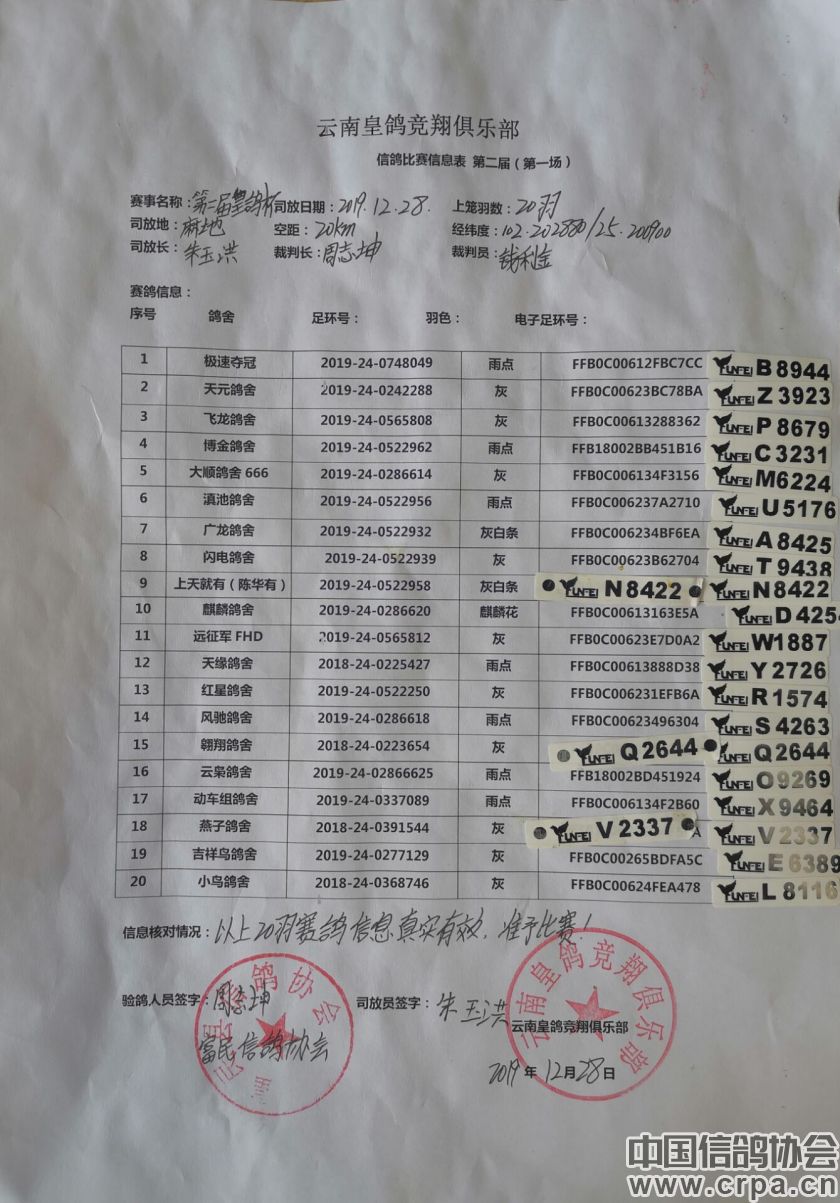 云南皇鸽竞翔俱乐部
信鸽比赛信息表 第二届（第一场）
赛事名称：第二届皇鸽杯 司放日期：2019.12.28. 上笼羽数：20羽
司放地：麻地 空距：20km 经纬度：102.202880/25.200900
司放长：朱玉洪 裁判长：周志坤 裁判员：钱利金
赛鸽信息：
序号 鸽舍 足环号： 羽色： 电子足环号：
1 极速夺冠 2019-24-0748049 雨点 FFB0C00612FBC7CC YUNFEI B 8944
2 天元鸽舍 2019-24-0242288 灰 FFB0C00623BC78BA YUNFEI Z 3923
3 飞龙鸽舍 2019-24-0565808 灰 FFB0C00613288362 YUNFEI P 8679
4 博金鸽舍 2019-24-0522962 雨点 FFB18002BB451B16 YUNFEI C 3231
5 大顺鸽舍 666 2019-24-0286614 灰 FFB0C006134F3156 YUNFEI M6224
6 滇池鸽舍 2019-24-0522956 雨点 FFB0C006237A2710 YUNFEI U 5176
7 广龙鸽舍 2019-24-0522932 灰白条 FFB0C006234BF6EA YUNFEI A 8425
8 闪电鸽舍 2019-24-0522939 灰 FFB0C00623B62704 YUNFEI T 9438
9 上天就有（陈华有） 2019-24-0522958 灰白条 YUNFEI N 8422 YUNFEI N 8422
10 麒麟鸽舍 2019-24-0286620 麒麟花 FFB0C00613163E5A YUNFEI D 4254
11 远征军 FHD 2019-24-0565812 灰 FFB0C00623E7D0A2 YUNFEI W1887
12 天缘鸽舍 2018-24-0225427 雨点 FFB0C00613888D38 YUNFEI Y 2726
13 红星鸽舍 2019-24-0522250 灰 FFB0C006231EFB6A YUNFEI R 1574
14 风驰鸽舍 2019-24-0286618 雨点 FFB0C00623496304 YUNFEI S 4263
15 翱翔鸽舍 2018-24-0223654 灰 YUNFEI Q 2644 YUNFEI Q 2644
16 云枭鸽舍 2019-24-02866625 雨点 FFB18002BD451924 YUNFEI O 9269
17 动车组鸽舍 2019-24-0337089 雨点 FFB0C006134F2B60 YUNFEI X 9464
18 燕子鸽舍 2018-24-0391544 灰 YUNFEI V 2337 A YUNFEI V 2337
19 吉祥鸟鸽舍 2019-24-0277129 灰 FFB0C00265BDFA5C YUNFEI E 6389
20 小鸟鸽舍 2018-24-0368746 灰 FFB0C00624FEA478 YUNFEI L 8116
信息核对情况：以上20羽赛鸽信息真实有效，准予比赛！
验鸽人员签字：周志坤 司放员签字：朱玉洪
云南皇鸽竞翔俱乐部
云南皇鸽竞翔俱乐部
富民信鸽协会
信鸽协会
2019 年 12 月 28 日
中国信鸽协会
www.crpa.cn